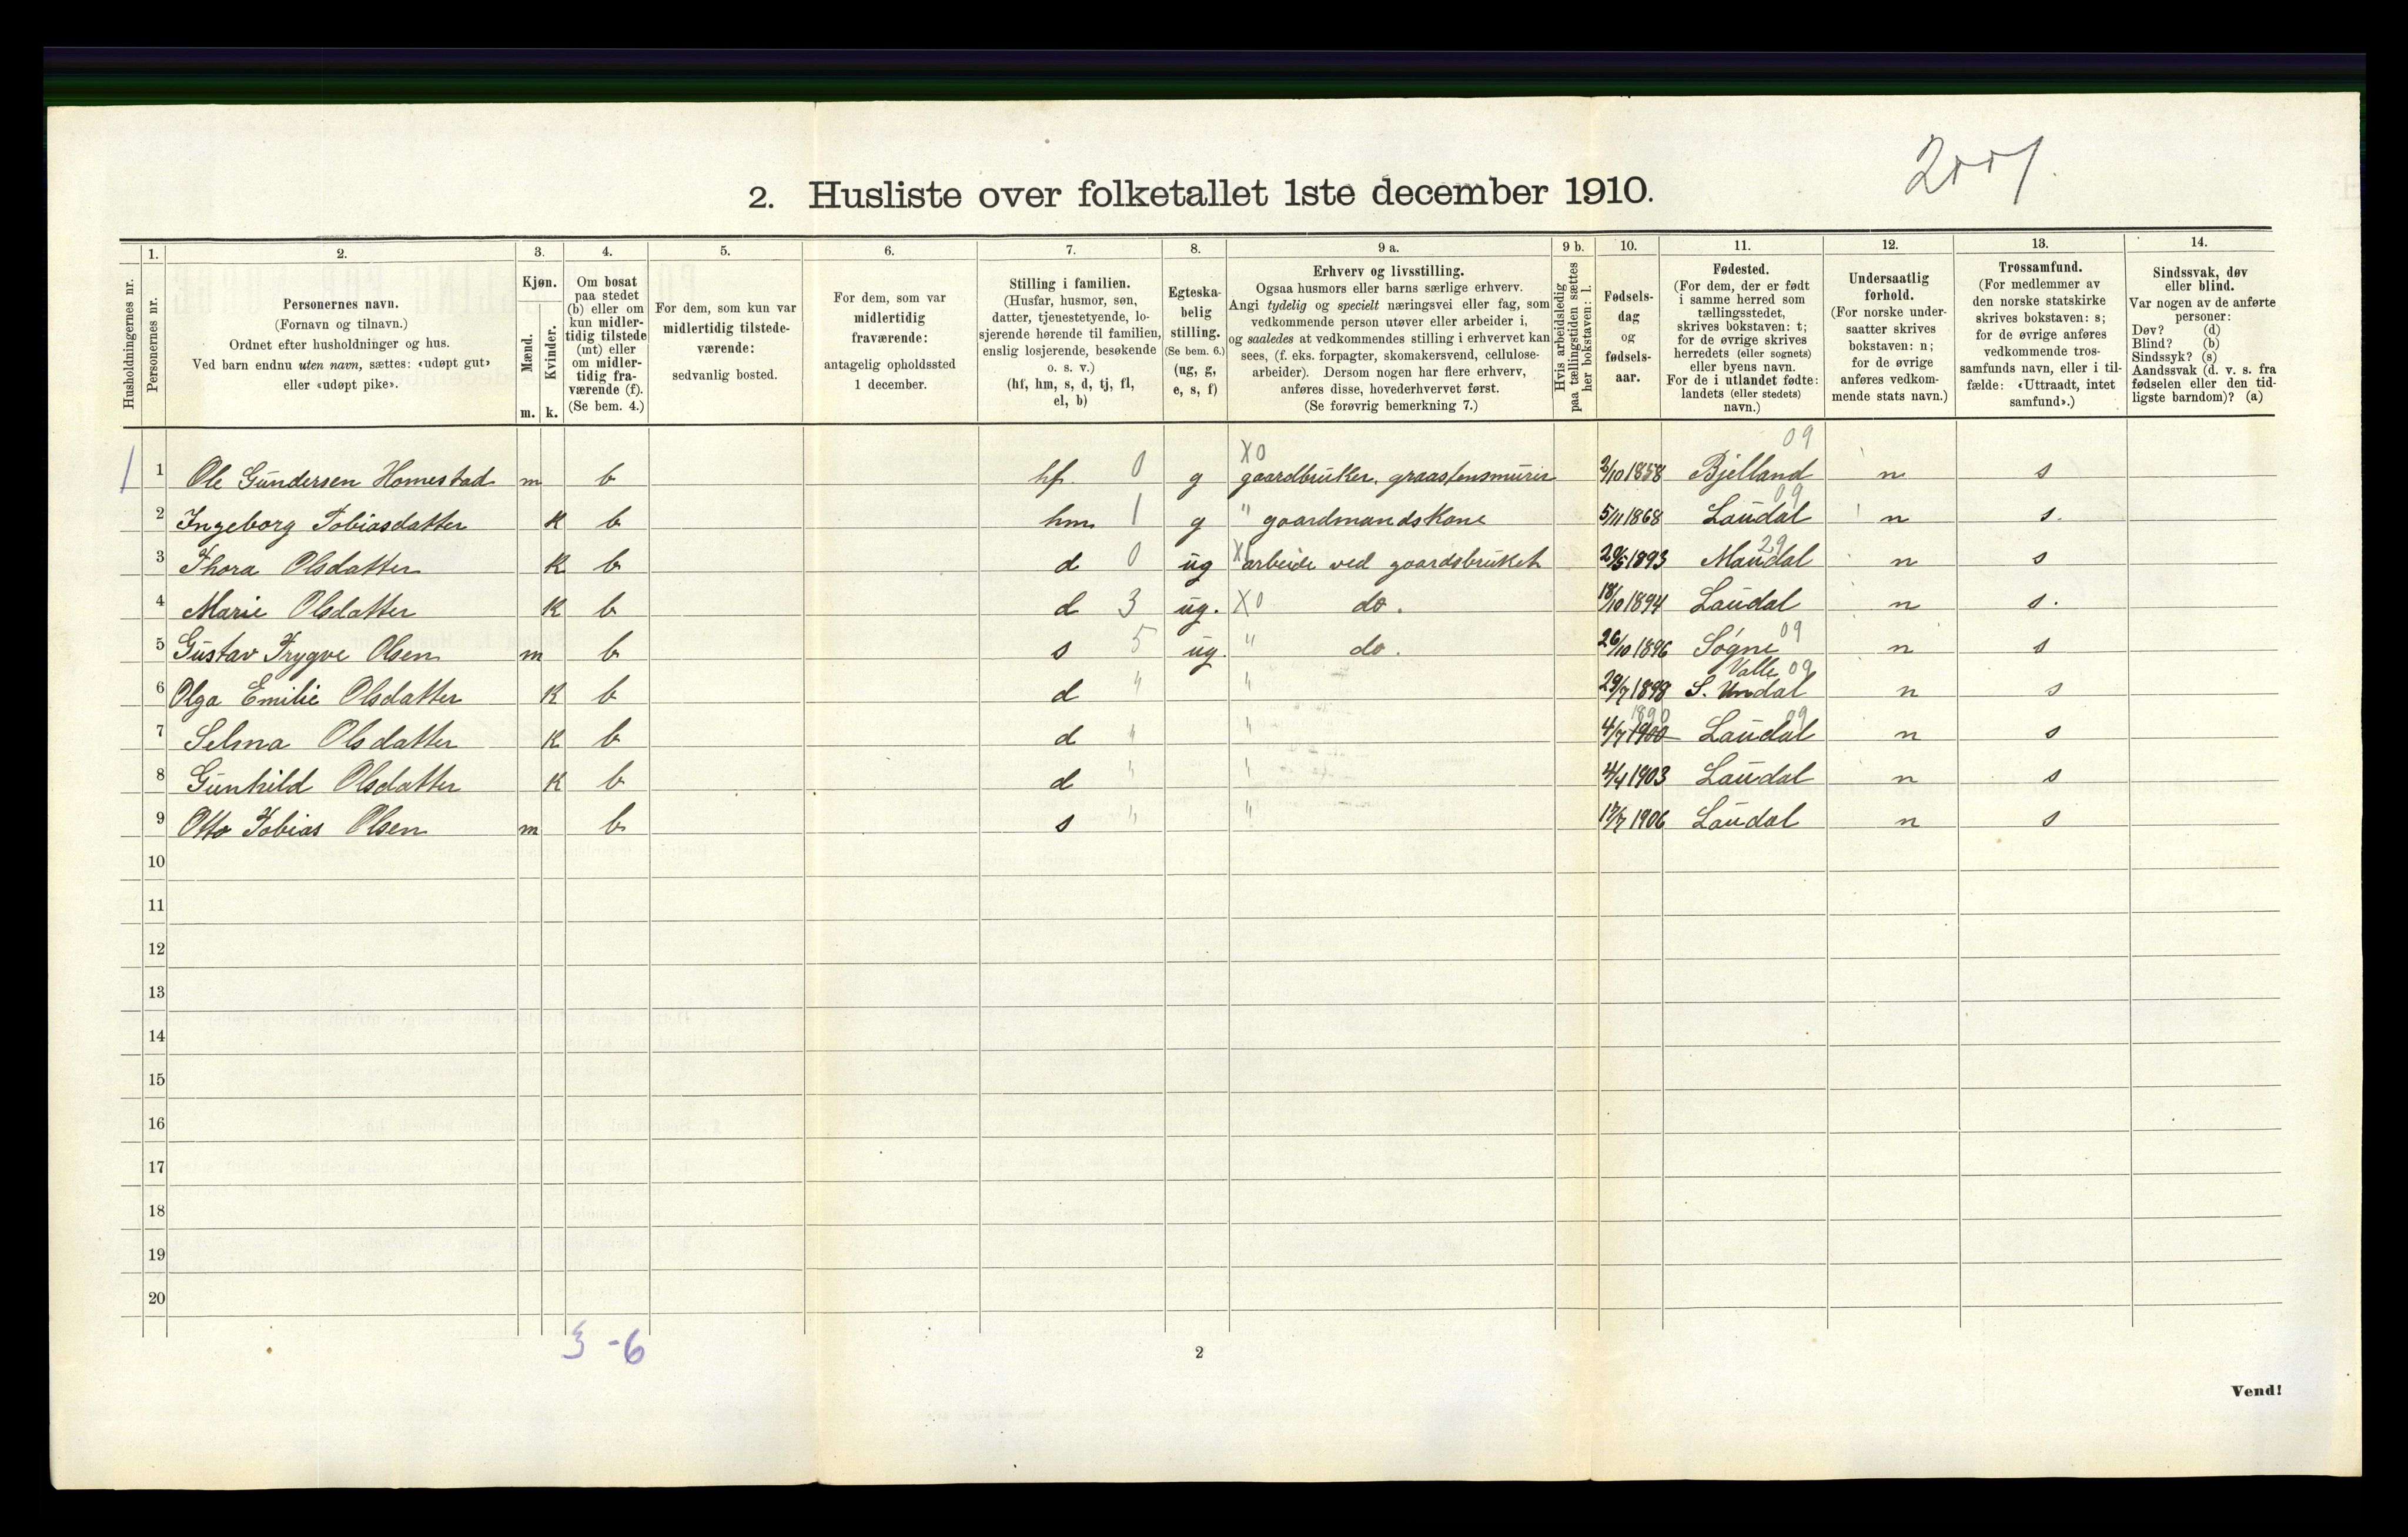 2001.
2. Husliste over folketallet 1ste december 1910.
Husholdningernes nr.
1.
Personernes nr.
2.
Personernes navn.
(Fornavn og tilnavn.)
Ordnet efter husholdninger og hus.
Ved barn endnu uten navn, sættes: «udøpt gut»
eller «udøpt pike».
3.
Kjøn.
Mænd.
Kvinder.
m. k.
4.
Om bosat
paa stedet
(b) eller om
kun midler-
tidig tilstede
(mt) eller
om midler-
tidig fra-
værende (f).
(Se bem. 4.)
5.
For dem, som kun var
midlertidig tilstede-
værende:
sedvanlig bosted.
6.
For dem, som var
midlertidig
fraværende:
antagelig opholdssted
1 december.
7.
Stilling i familien.
(Husfar, husmor, søn,
datter, tjenestetyende, lo-
sjerende hørende til familien,
enslig losjerende, besøkende
o. s. v.)
(hf, hm, s, d, tj, fl,
el, b)
8.
Egteska-
belig
stilling.
(Se bem. 6.)
(ug, g,
e, s, f)
9 a.
Erhverv og livsstilling.
Ogsaa husmors eller barns særlige erhverv.
Angi tydelig og specielt næringsvei eller fag, som
vedkommende person utøver eller arbeider i,
og saaledes at vedkommendes stilling i erhvervet kan
sees, (f. eks. forpagter, skomakersvend, cellulose-
arbeider). Dersom nogen har flere erhverv,
anføres disse, hovederhvervet først.
(Se forøvrig bemerkning 7.)
9 b.
Hvis arbeidsledig
paa tællingstiden sættes
her bokstaven: l.
10.
Fødsels-
dag
og
fødsels-
aar.
11.
Fødested.
(For dem, der er født
i samme herred som
tællingsstedet,
skrives bokstaven: t;
for de øvrige skrives
herredets (eller sognets)
eller byens navn.
For de i utlandet fødte:
landets (eller stedets)
navn.)
12.
Undersaatlig
forhold.
(For norske under-
saatter skrives
bokstaven: n;
for de øvrige
anføres vedkom-
mende stats navn.)
13.
Trossamfund.
(For medlemmer av
den norske statskirke
skrives bokstaven: s;
for de øvrige anføres
vedkommende tros-
samfunds navn, eller i til-
fælde: «Uttraadt, intet
samfund».)
14.
Sindssvak, døv
eller blind.
Var nogen av de anførte
personer:
Døv? (d)
Blind? (b)
Sindssyk? (s)
Aandssvak (d. v. s. fra
fødselen eller den tid-
ligste barndom)? (a)
X0 09
1 1 Ole Gundersen Homestad m b hf. 0 g gaardbruker, graastensmurer 2/10 1858 Bjelland n s
09
2 Ingeborg Tobiasdatter k b hm 1 g " gaardmandskone 5/11 1868 Laudal n s.
29
3 Thora Olsdatter k b d 0 ug X1 arbeide ved gaardsbruket 29/5 1893 Mandal n s
4 Marie Olsdatter k b d 3 ug. X0 do. 18/10 1894 Laudal n s.
09
5 Gustav Trygve Olsen m b s 5 ug. " do. 26/10 1896 Søgne n s
Valle 09
6 Olga Emilie Olsdatter k b d " " 29/7 1898 S. Undal n s
1890 09
7 Selma Olsdatter k b d " " 4/7 1900 Laudal n s
8 Gunhild Olsdatter k b d " " 4/4 1903 Laudal n s
9 Otto Tobias Olsen m b s " " 17/7 1906 Laudal n s
10
11
12
13
14
15
16
17
18
19
20
3 - 6
2
Vend!